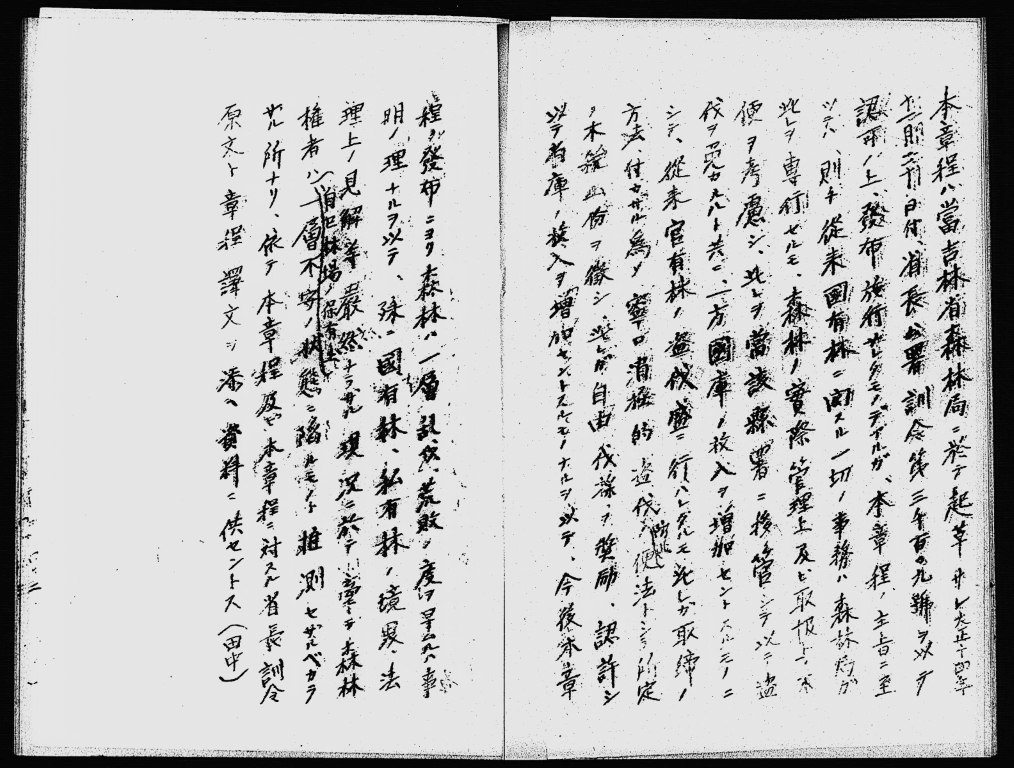 本章程ハ當吉林省森林局ニ於テ起草サレ大正十四年
十二月二十日付、省長公署訓令第三千百九號ヲ以テ
認可ノ上、發布施行サレタモノデアルガ、本章程ノ主旨ニ至
ツテハ、則チ從来國有林ニ関スル一切ノ事務ハ森林局ガ
此レヲ専行セルモ、森林ノ實際管理上及ビ取扱上ノ不
便ヲ考慮シ、此レヲ當該縣署ニ移管シテ以テ盗
伐ヲ免カスルト共ニ、一方國庫ノ收入ヲ増加セントスルモノニ
シテ、從来官有林ノ盗伐盛ニ行ハレタルモ此レガ取締ノ
方法ノ付カザル為メ寧ロ消極的盗伐防止便法トシテ所定
ノ木
ヲ徴シ、此レガ自由伐採ヲ奨励、認許シ
以テ省庫ノ收入ヲ増加セントスルモノナルヲ以テ、今後本章
程ガ發布ニヨリ森林ハ一層乱伐、荒敗ノ度ヲ呈スルハ事
明ノ理ナルヲ以テ、殊ニ國有林、私有林ノ境界、法
理上ノ見解等嚴然ナラザル現況ニ於テ
森林
權者ハ自己林場ノ保有上一層不安ノ状態ニ陷ルモノト推測セザルベカラ
ザル所ナリ、依テ本章程及ビ本章程ニ対スル省長訓令
原文ト章程譯文ヲ添ヘ資料ニ供セントス(田中)